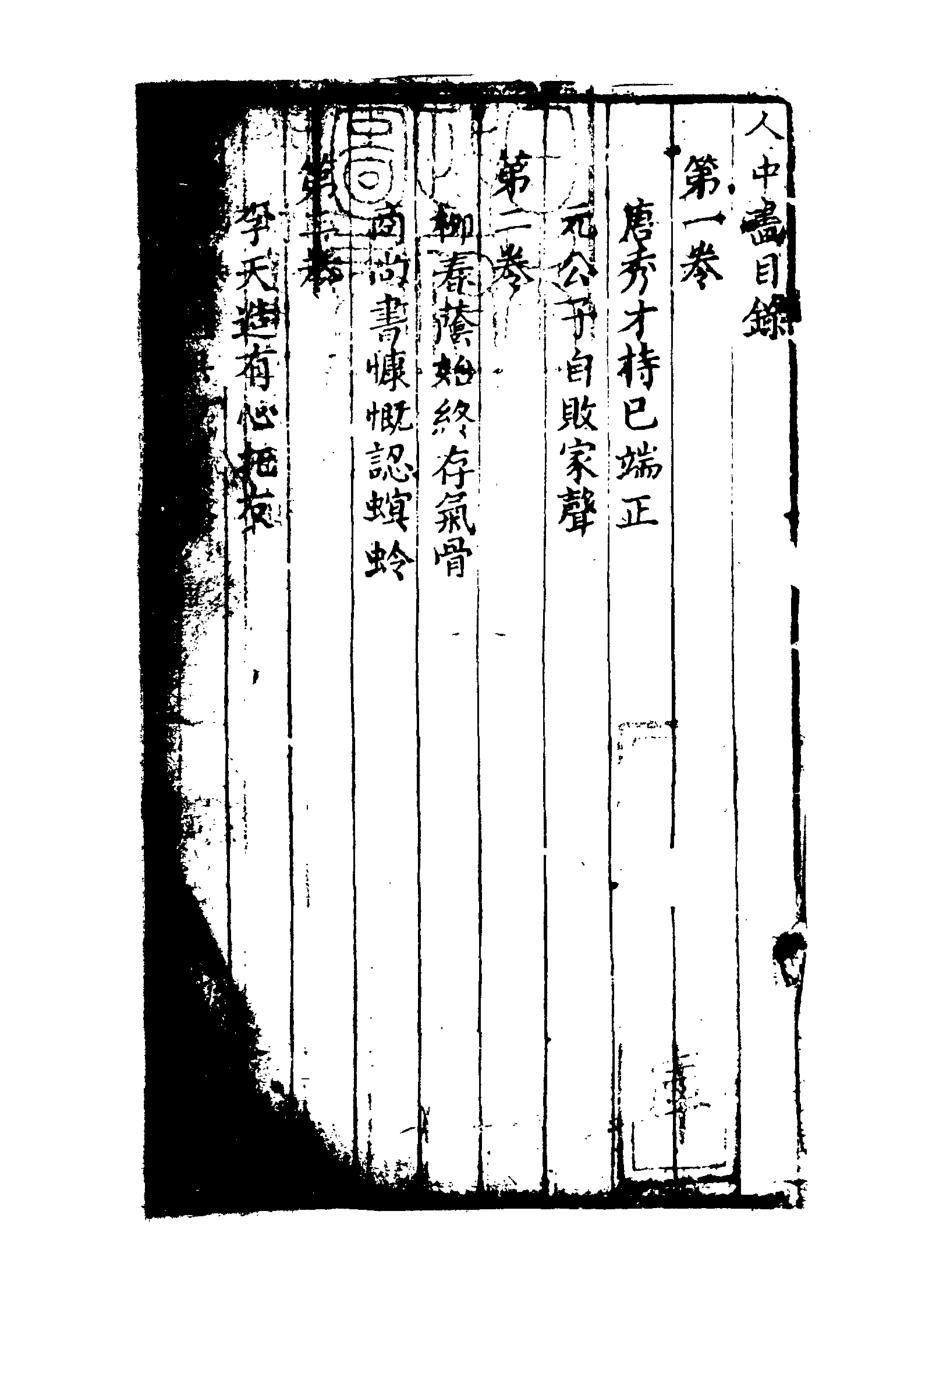 人中畫目錄
第一卷
唐秀才持已端正
元公子自敗家聲
第二卷
柳春蔭始終存氣骨
商尚書慷慨認螟蛉
第三卷
李天造有心托友